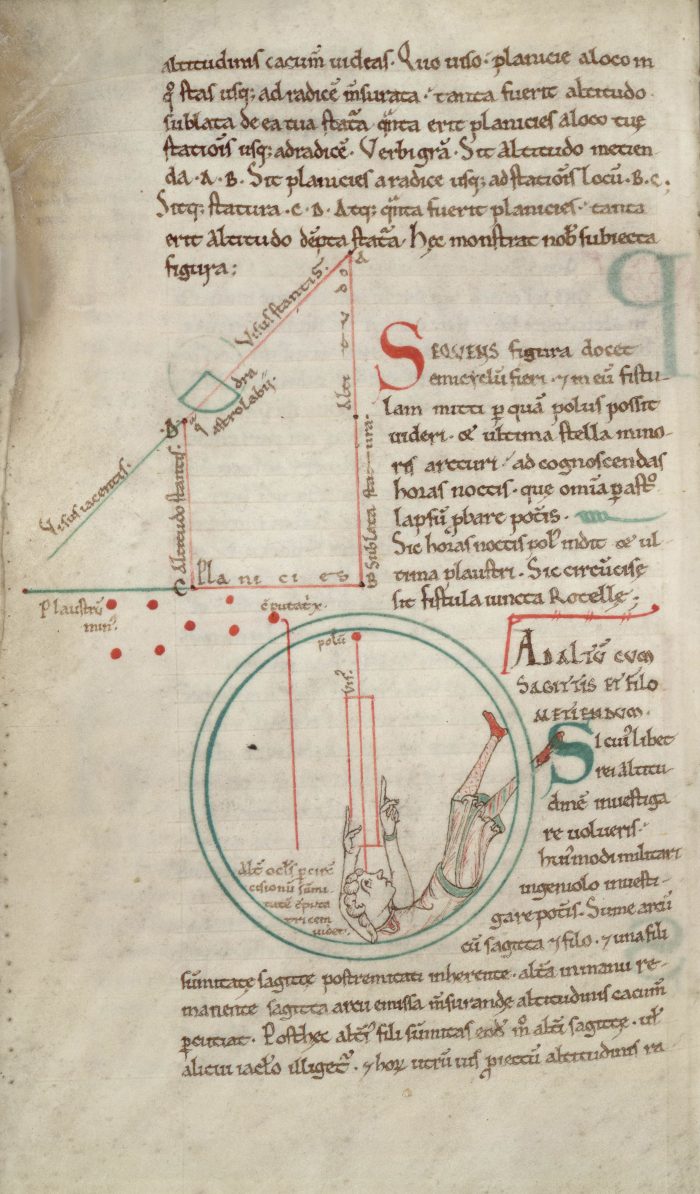 altitudinis cacum̄ uideas · Quo uiso · planicie a loco in
q̊ stas usq; ad radicē m̄surata · tanta fuerit altitudo
sublata de ea tua stat̄a · qͣnta erit planicies a loco tuę
stationis usq; ad radicē · Verbi grā · Sit altitudo metien
da · A · B · Sit planicies a radice usq; ad stationis locū · B · C ·
Sitq; statura · C · D · Atq; qͣnta fuerit planicies · tanta
erit altitudo dēpta stat̄a · Hęc monstrat nob̄ subiecta
figura ;
A
Visus stantis ·
Altitudo
dra
q
astrolabii ·
D
Visus iacentis ·
Altitudo stantis ·
B Sublata statura ·
C Planicies
SEQVENS figura docet
Semicyclū fieri · ⁊ in eū fistu
lam mitti p̱ quā polus possit
uideri · & ultima stella mino
ris arcturi · ad cognoscendas
horas noctis · que om̄ia p̱ ast°
lapsū p̱bare potis ·
Sic horas noctis pol' indit & ul
tima plaustri · Sic circūcise
sit fistula iuncta Rotellę ·
Plaustrū
min' ·
cͦputatͥx ·
polū
uis'
Altͦ ocl's p̱ circū
cisionū sum̄i
tatē cͦputa
tricem
uidet ·
AD ALTŪ CVM
SAGITIS ET FILO
METIENDUM ·
Si cui'libet
rei altitu
dinē inuestiga
re uolueris ·
hui'modi militari
ingeniolo inuesti-
gare potis · Sume arcū
cū sagitta ⁊ filo · ⁊ una fili
sum̄itate sagittę postremitati inherente · altā in manu re-
manente sagitta arcu emissa m̄surandę altitudinis cacum̄
p̱cutiat · Posthęc altī' fili sum̄itas eod̄ m̊ altī sagittę · ul'
alicui iaclo illiget̄ · ⁊ hoꝝ utrū uis p̱iectū altitudinis ra